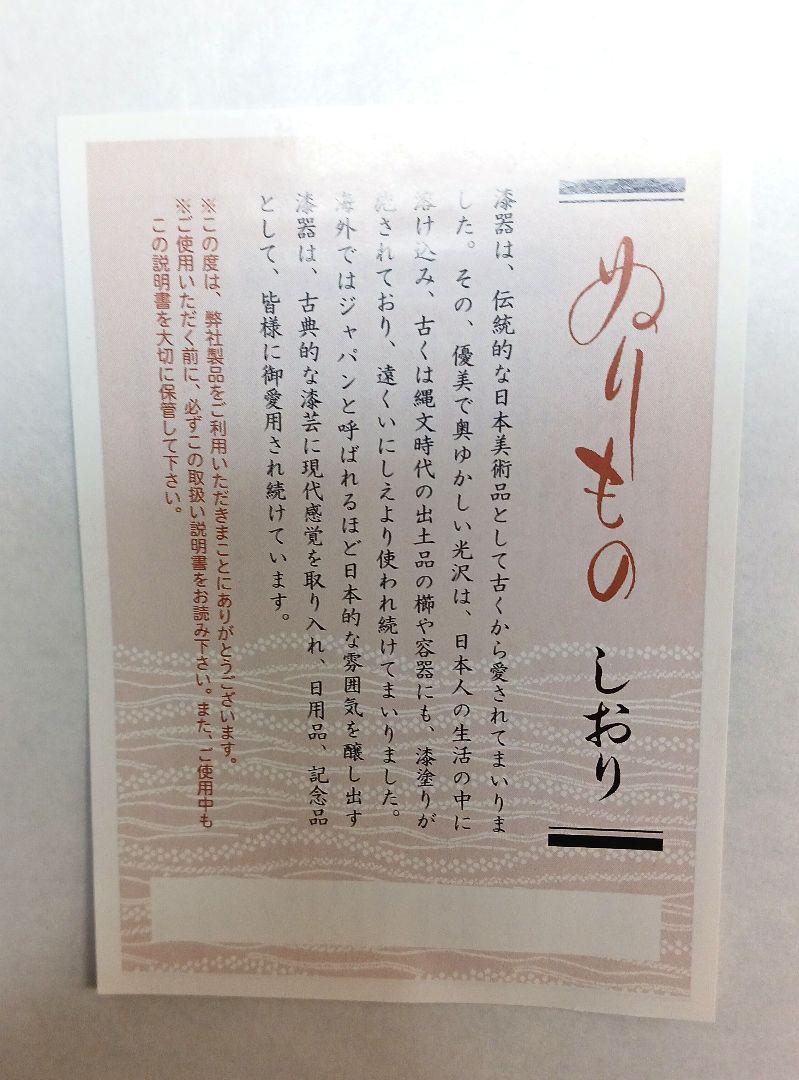 ぬりもの しおり
漆器は、伝統的な日本美術品として古くから愛されてまいりま
した。その、優美で奥ゆかしい光沢は、日本人の生活の中に
溶け込み、古くは縄文時代の出土品の櫛や容器にも、漆塗りが
施されており、遠くいにしえより使われ続けてまいりました。
海外ではジャパンと呼ばれるほど日本的な雰囲気を醸し出す
漆器は、古典的な漆芸に現代感覚を取り入れ、日用品、記念品
として、皆様に御愛用され続けています。
※この度は、弊社製品をご利用いただきまことにありがとうございます。
※ご使用いただく前に、必ずこの取扱い説明書をお読み下さい。また、ご使用中も
この説明書を大切に保管して下さい。